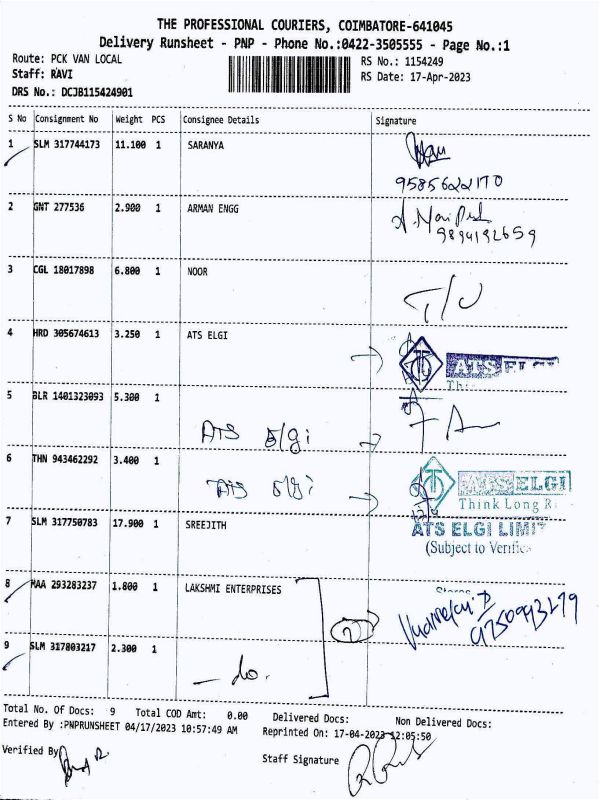 THE PROFESSIONAL COURIERS, COIMBATORE-641045
Delivery Runsheet - PNP - Phone No.:0422-3505555 - Page No.:1
Route: PCK VAN LOCAL
RS No.: 1154249
Staff: RAVI
RS Date: 17-Apr-2023
DRS No.: DCJB115424901
S No Consignment No Weight PCS Consignee Details Signature
1 SLM 317744173 11.100 1 SARANYA
9585622170
2 GNT 277536 2.900 1 ARMAN ENGG
9894192659
3 CGL 18017898 6.800 1 NOOR
T/U
4 HRD 305674613 3.250 1 ATS ELGI
ATS ELGI
5 BLR 1401323093 5.300 1
ATS Elgi
6 THN 943462292 3.400 1
ATS Elgi
ATS ELGI
Think Long
7 SLM 317750783 17.900 1 SREEJITH
ATS ELGI LIMIT
(Subject to Verific
8 MAA 293283237 1.800 1 LAKSHMI ENTERPRISES
Stores
9 SLM 317803217 2.300 1
- do.
Total No. Of Docs: 9 Total COD Amt: 0.00 Delivered Docs: Non Delivered Docs:
Entered By :PNPRUNSHEET 04/17/2023 10:57:49 AM Reprinted On: 17-04-2023 12:05:50
Verified By
Staff Signature